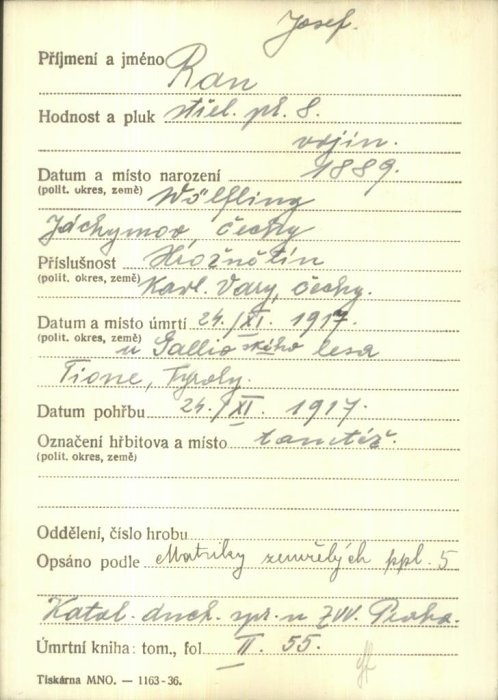 Josef.
Příjmení a jméno Ran
Hodnost a pluk střel. pl. 8.
vojín.
Datum a místo narození 1889.
(polit. okres, země) Wölfling
Jáchymov, Čechy
Příslušnost Hroznětín
(polit. okres, země) Karl. Vary, Čechy.
Datum a místo úmrtí 24./XI. 1917.
(polit. okres, země) u Gallio ského lesa
Tione, Tyroly.
Datum pohřbu 24./XI. 1917.
Označení hřbitova a místo tamtéž.
(polit. okres, země)
Oddělení, číslo hrobu
Opsáno podle Matriky zemřelých ppl. 5
Katol. duch. spr. u ZVV. Praha.
Úmrtní kniha: tom., fol II. 55.
Tiskárna MNO. — 1163-36.